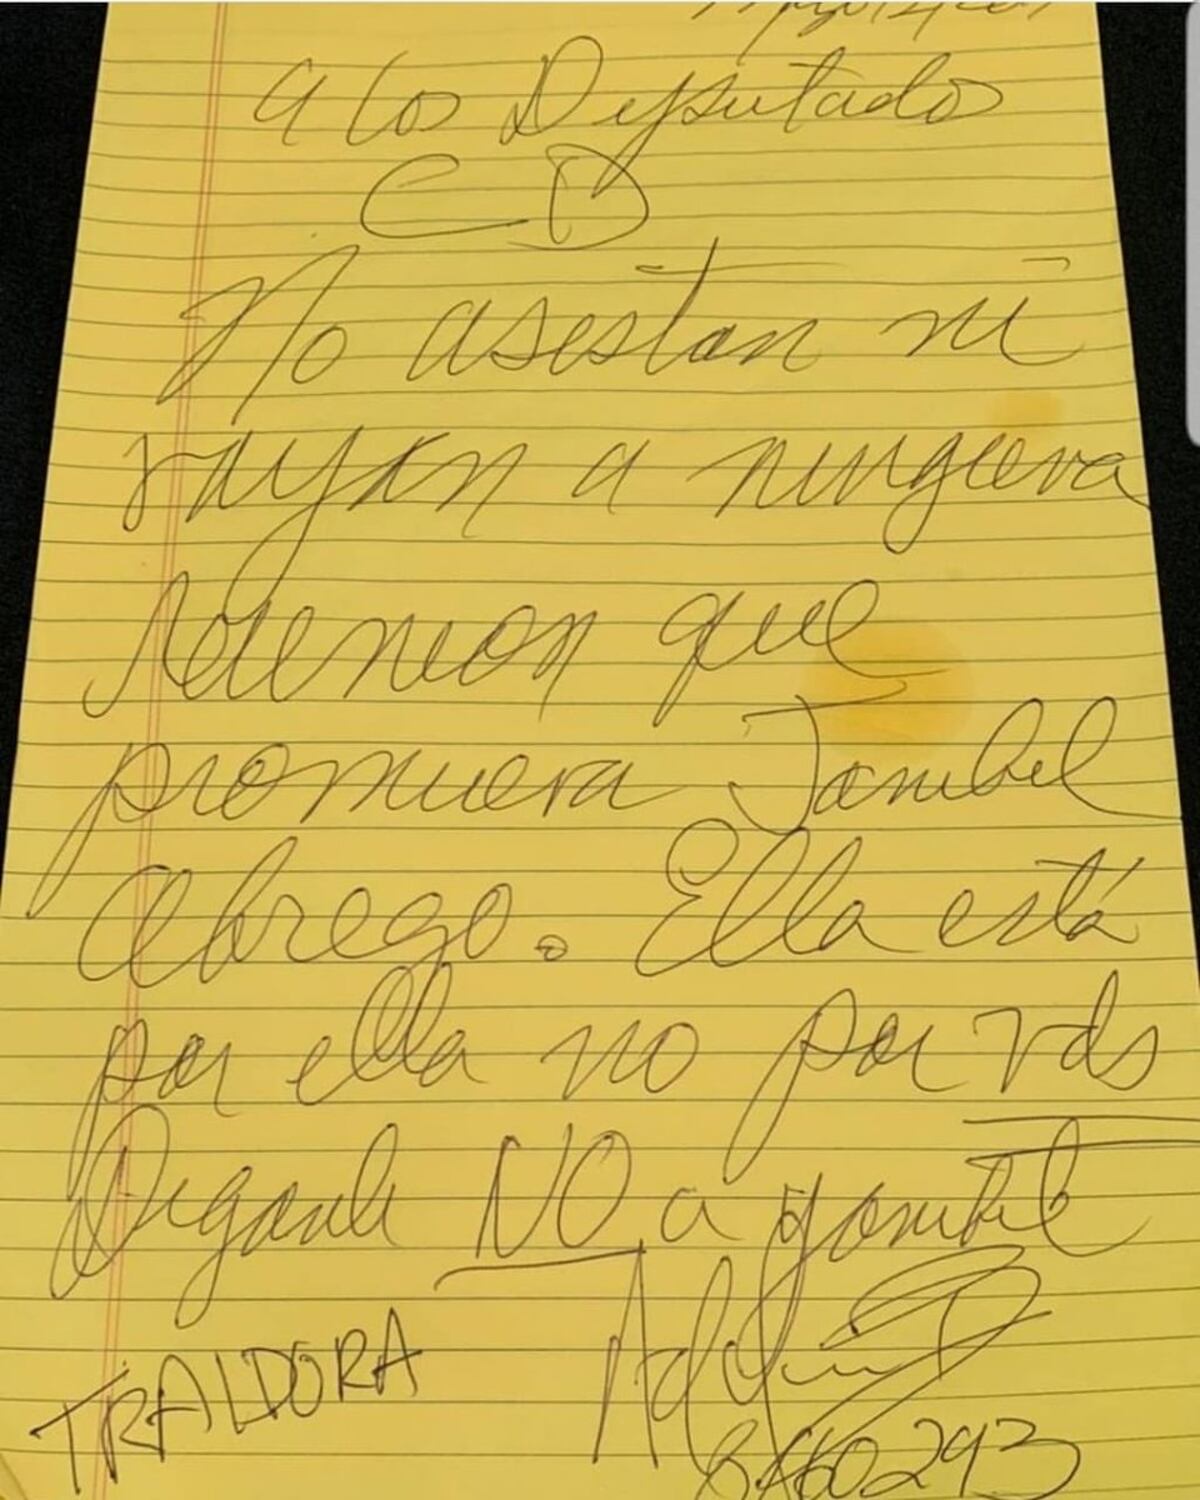 a los Diputados
CD
No asistan ni
vayan a ninguna
reunion que
promueva Yanibel
Abrego. Ella está
por ella no por Uds
Diganle NO a Yanibel
TRAIDORA